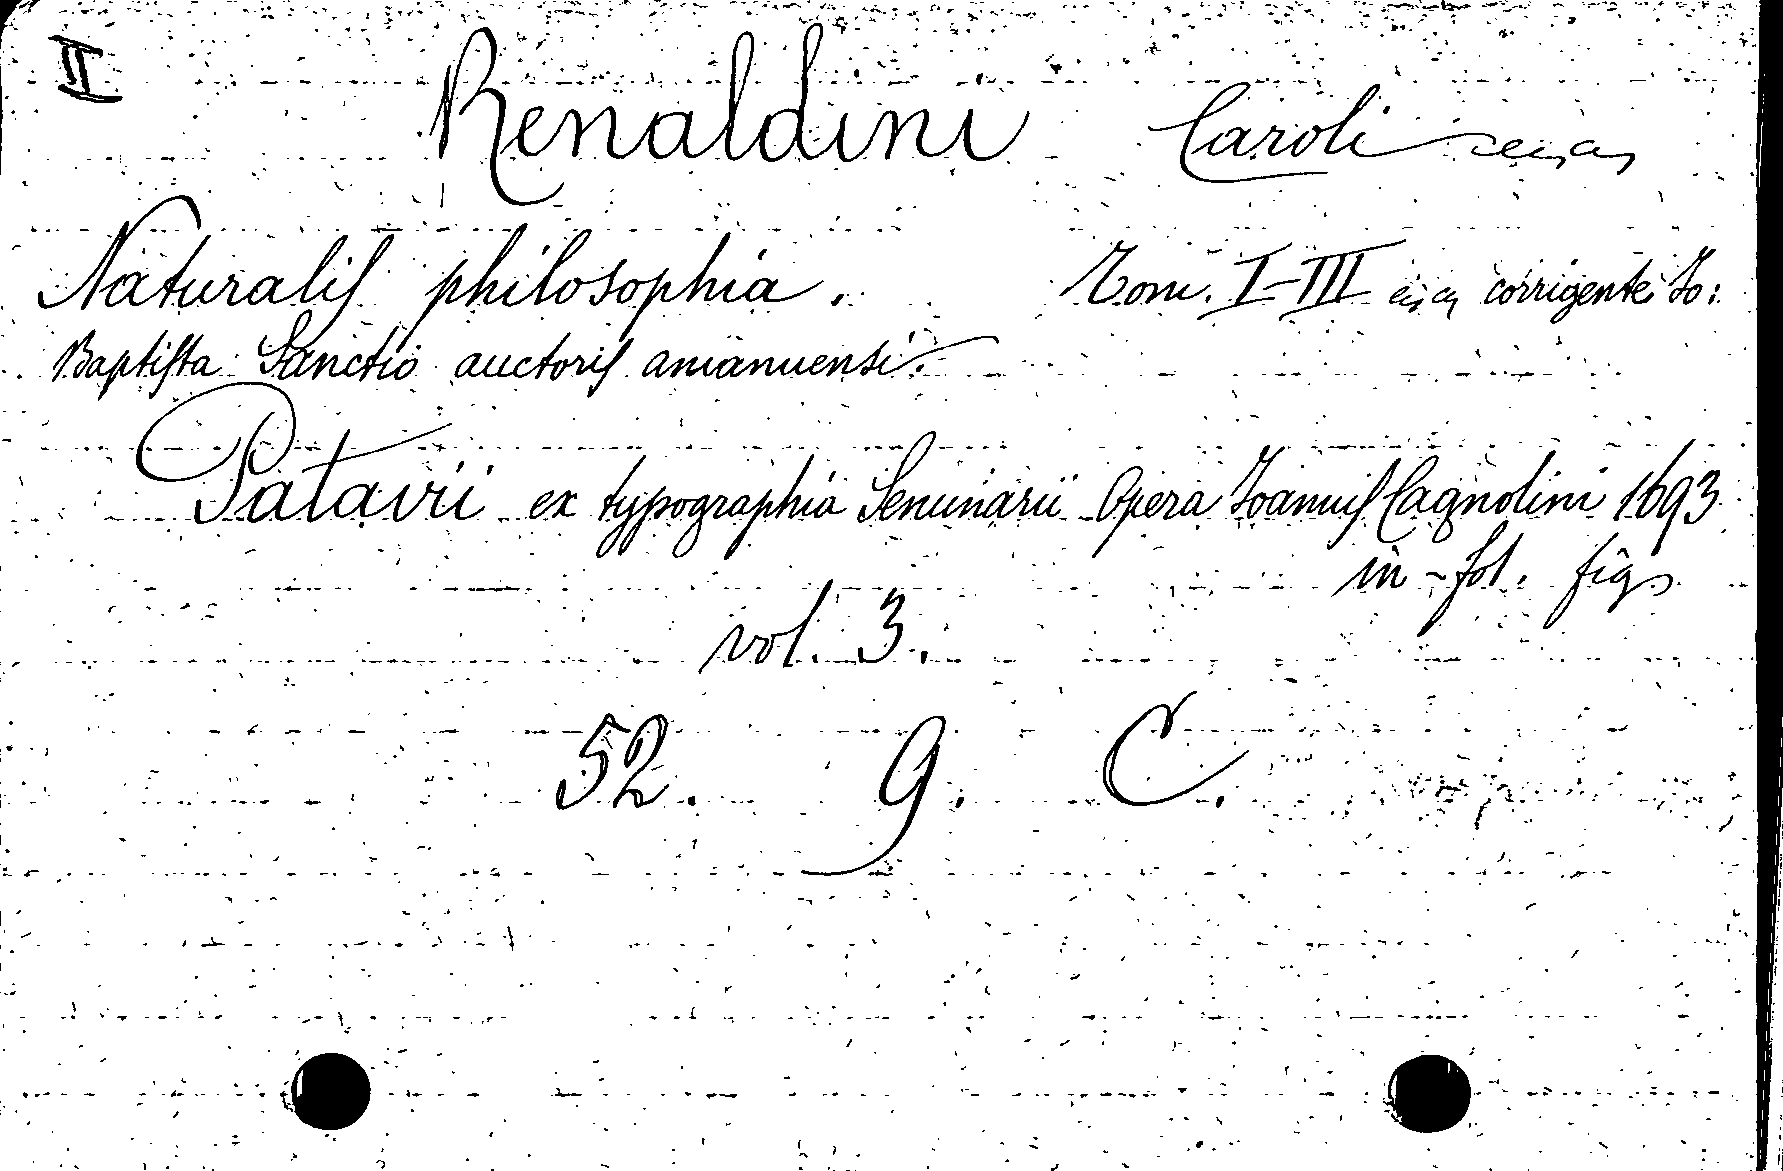 II Renaldini Caroli
Naturalis philosophia. Tom. I-III corrigente Jo:
Baptista Sanctio auctoris amanuensi.
Patavii ex typographia Seminarii Opera Joannis Cagnolini 1693
in-fol. figs
vol. 3.
52. 9. C.